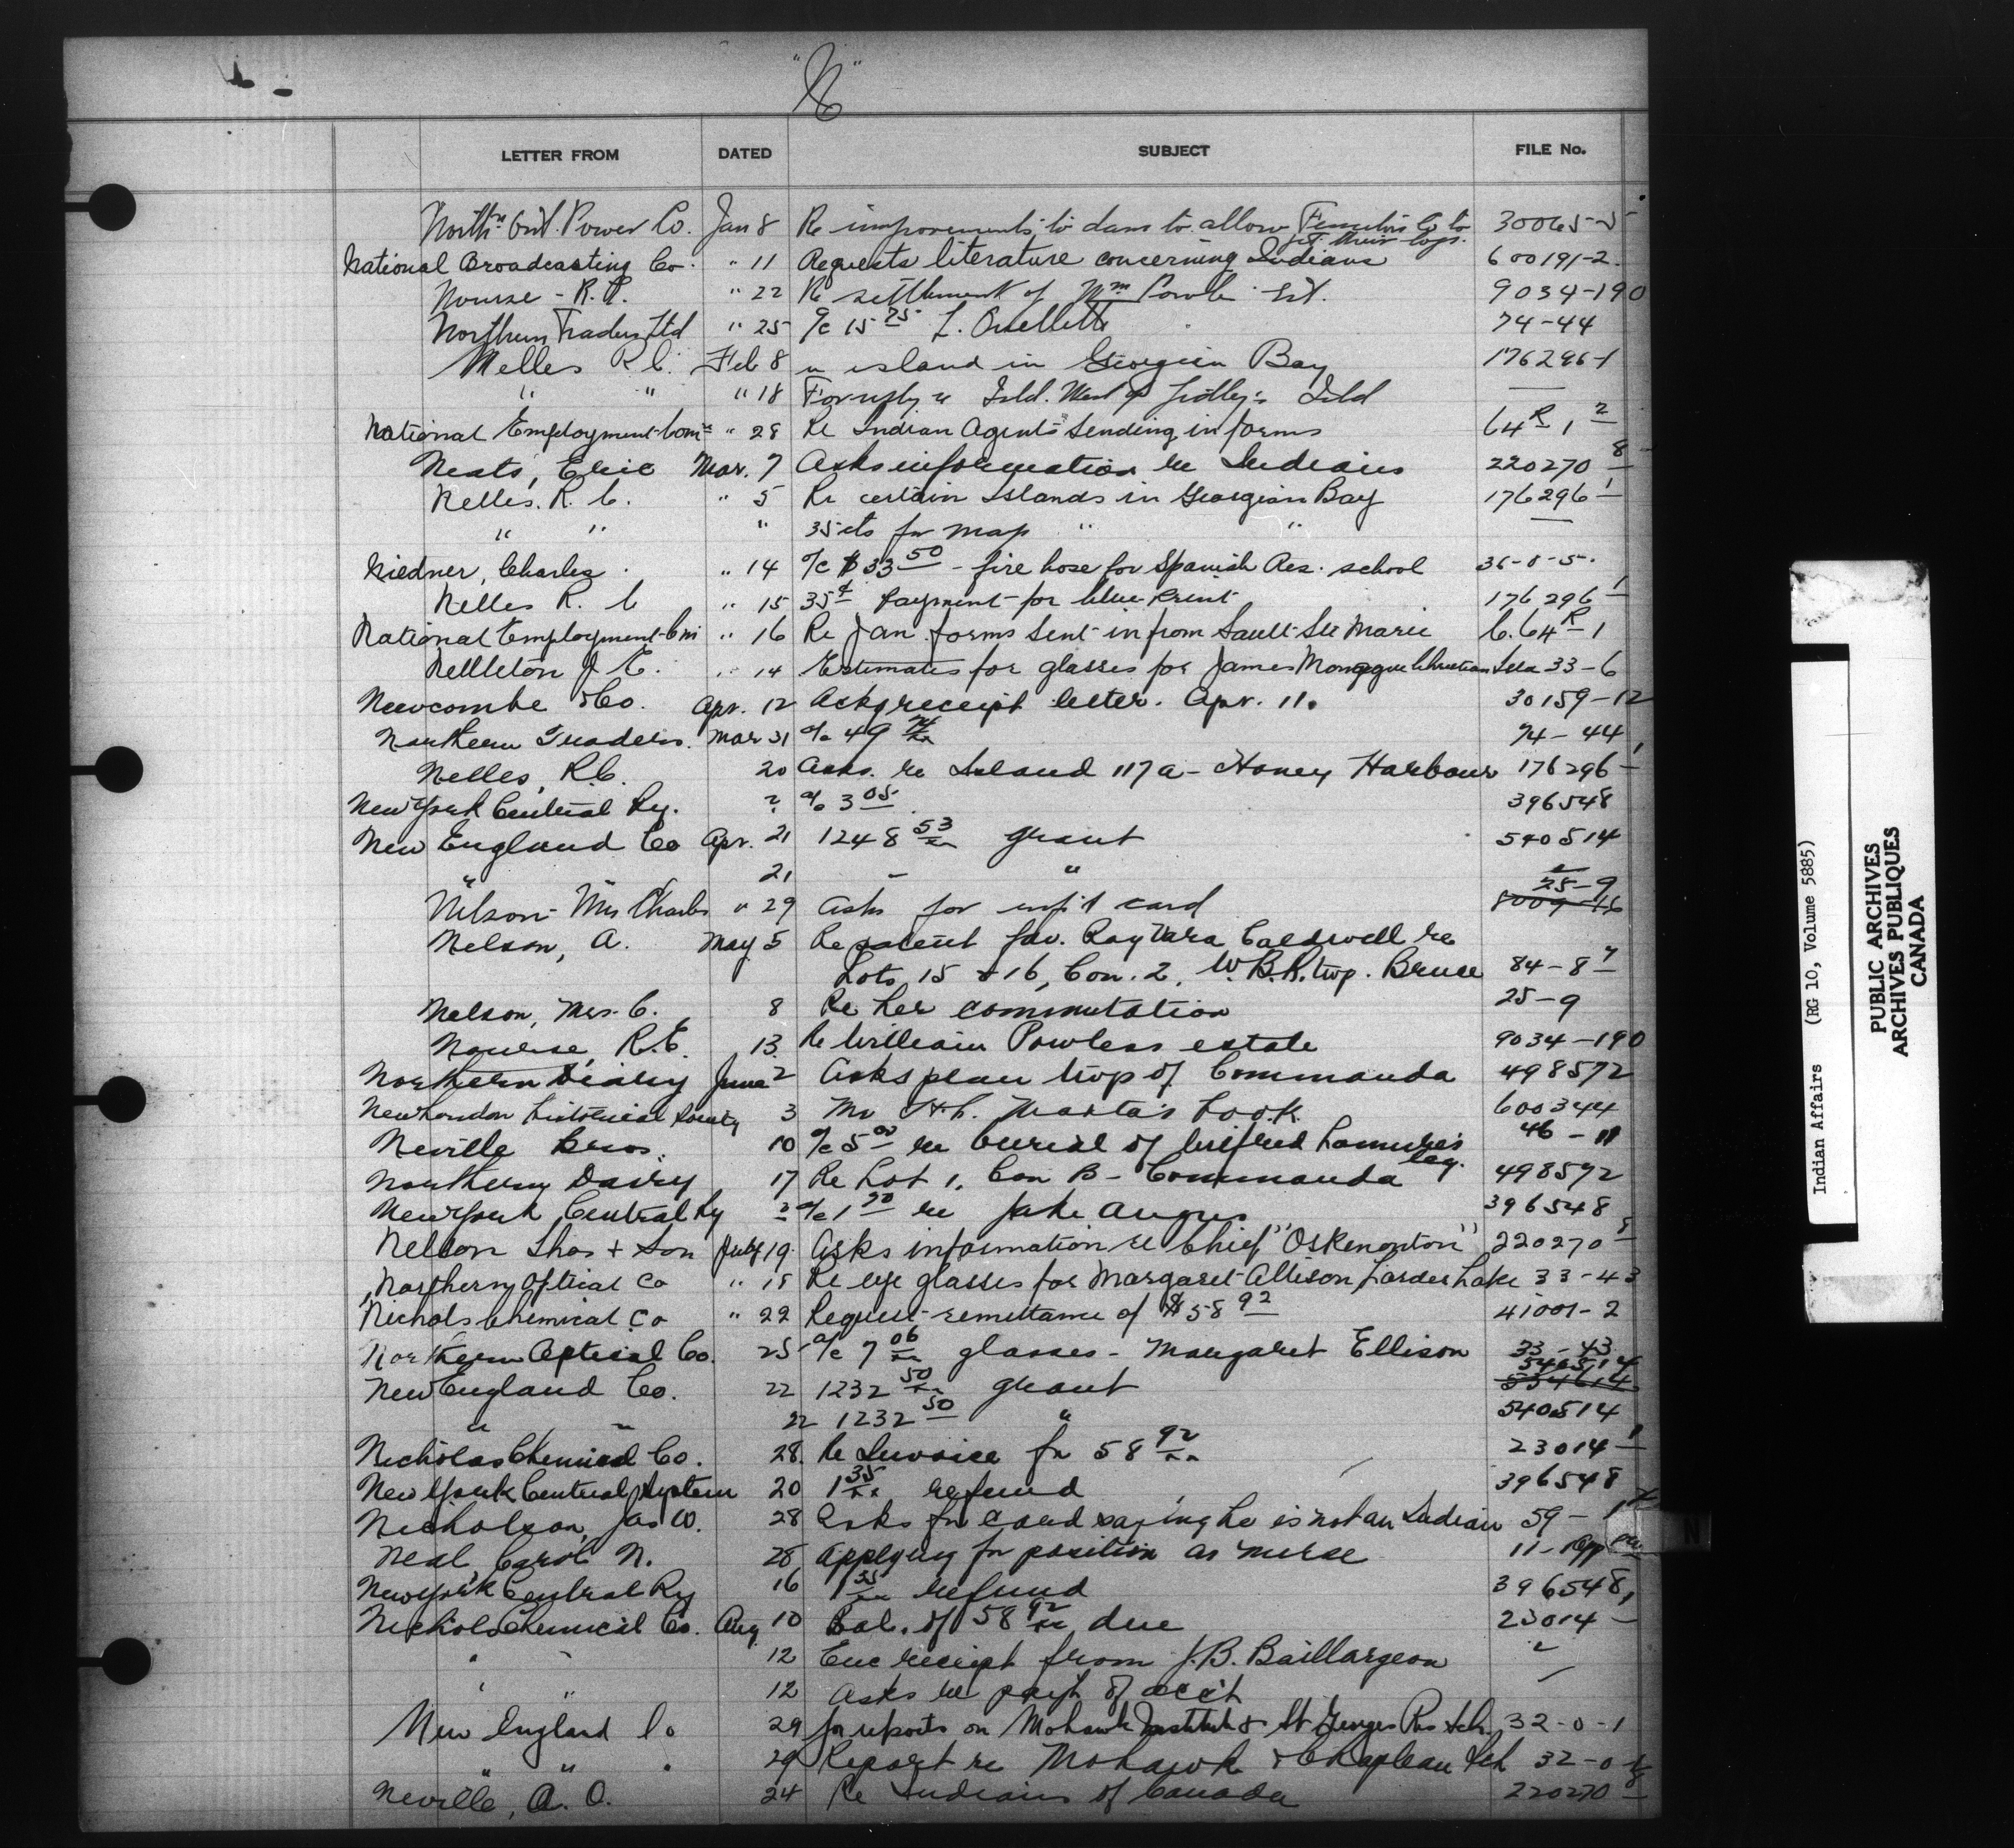 "N"
LETTER FROM DATED SUBJECT FILE No.
North'n Ont. Power Co. Jan 8 Re improvements to dam to allow Co to 30065-5
get their logs.
National Broadcasting Co. " 11 Requests literature concerning Indians 600191-2
Nourse - R.E. " 22 Re settlement of Wm Powless Est. 9034-190
Northern Traders Ltd " 25 a/c 15 75 L. Ouellette 74-44
Nelles R C. Feb 8 re island in Georgian Bay 176296-1
" " " 18 re Isld. West of Isld
National Employment Com'n " 28 Re Indian Agents sending in forms 64 R 1 2
Neats, Elsie Mar. 7 Asks information re Indians 220270 8
Nelles. R. C. " 5 Re certain Islands in Georgian Bay 176296 1
" " " 35 cts for map " " —
Niedner, Charles " 14 a/c $33 50 - fire hose for Spanish Res. school 36-8-5.
Nelles R. C " 15 35¢ payment for blue print 176296 1
National Employment Com " 16 Re Jan. forms sent in from Sault Ste Marie C. 64 R 1
Nettleton J. E. " 14 Estimates for glasses for James Monague Christian Isld 33-6
Newcombe & Co. Apr. 12 Ackg receipt letter. Apr. 11. 30159-12
Northern Traders. Mar 31 a/c 49 74-44
Nelles, R.C. 20 Asks. re Island 117a - Honey Harbour 176296 1
New York Central Ry. ? a/c 3 05 396548
New England Co Apr. 21 1248 53 grant 540514
" 21 — " "
Nelson - Mrs Charles " 29 Asks for inf't card 25-9
Nelson, A. May 5 Re patent fav. Ray Vara Caldwell re
Lots 15 & 16, Con. 2, W.B.R. twp. Bruce 84-8 7
Nelson, Mrs. C. 8 Re her commutation 25-9
Nourse, R.E. 13. Re William Powless estate 9034-190
Northern Dairy June 2 Asks plan twp of Commanda 498572
New London Historical Society 3 book 600344
Neville Bros. 10 a/c 5 00 re burial of Wilfred 46-11
Northern Dairy 17 Re Lot 1, Con B - Commanda 498572
New York Central Ry ? a/c 1 90 re Jake Angus 396548
Nelson Thos + Son July 19. Asks information re Chief "Oskenonton" 220270 8
Northern Optical Co " 18 Re eye glasses for Margaret Allison Larder Lake 33-43
Nichols Chemical Co " 22 Request remittance of $58 92 41001-2
Northern Optical Co. 25 a/c 7 06 glasses - Margaret Ellison 33-43
New England Co. 22 1232 50 grant 540514
" " 22 1232 50 " 540514
Nicholas Chemical Co. 28. Re Invoice for 58 92 23014 1
New York Central System 20 1 35 refund 396548
Nicholson, Jas W. 28 Asks for card saying he is not an Indian 59-1
Neal, Carol N. 28 Applying for position as nurse 11-App
New York Central Ry 16 1 35 refund 396548
Nichols Chemical Co. Aug 10 Bal. of 58 92 due 23014 1
" " 12 Enc receipt from J.B. Baillargeon "
" " 12 Asks re pay't of acc't
New England Co 29 for reports on Mohawk Institute & St Georges Res Sch. 32-0-1
" " " 29 Report re Mohawk & Chapleau Sch 32-0
Neville, A. O. 24 Re Indians of Canada 220270 8
N
Indian Affairs (RG 10, Volume 5885)
PUBLIC ARCHIVES
ARCHIVES PUBLIQUES
CANADA